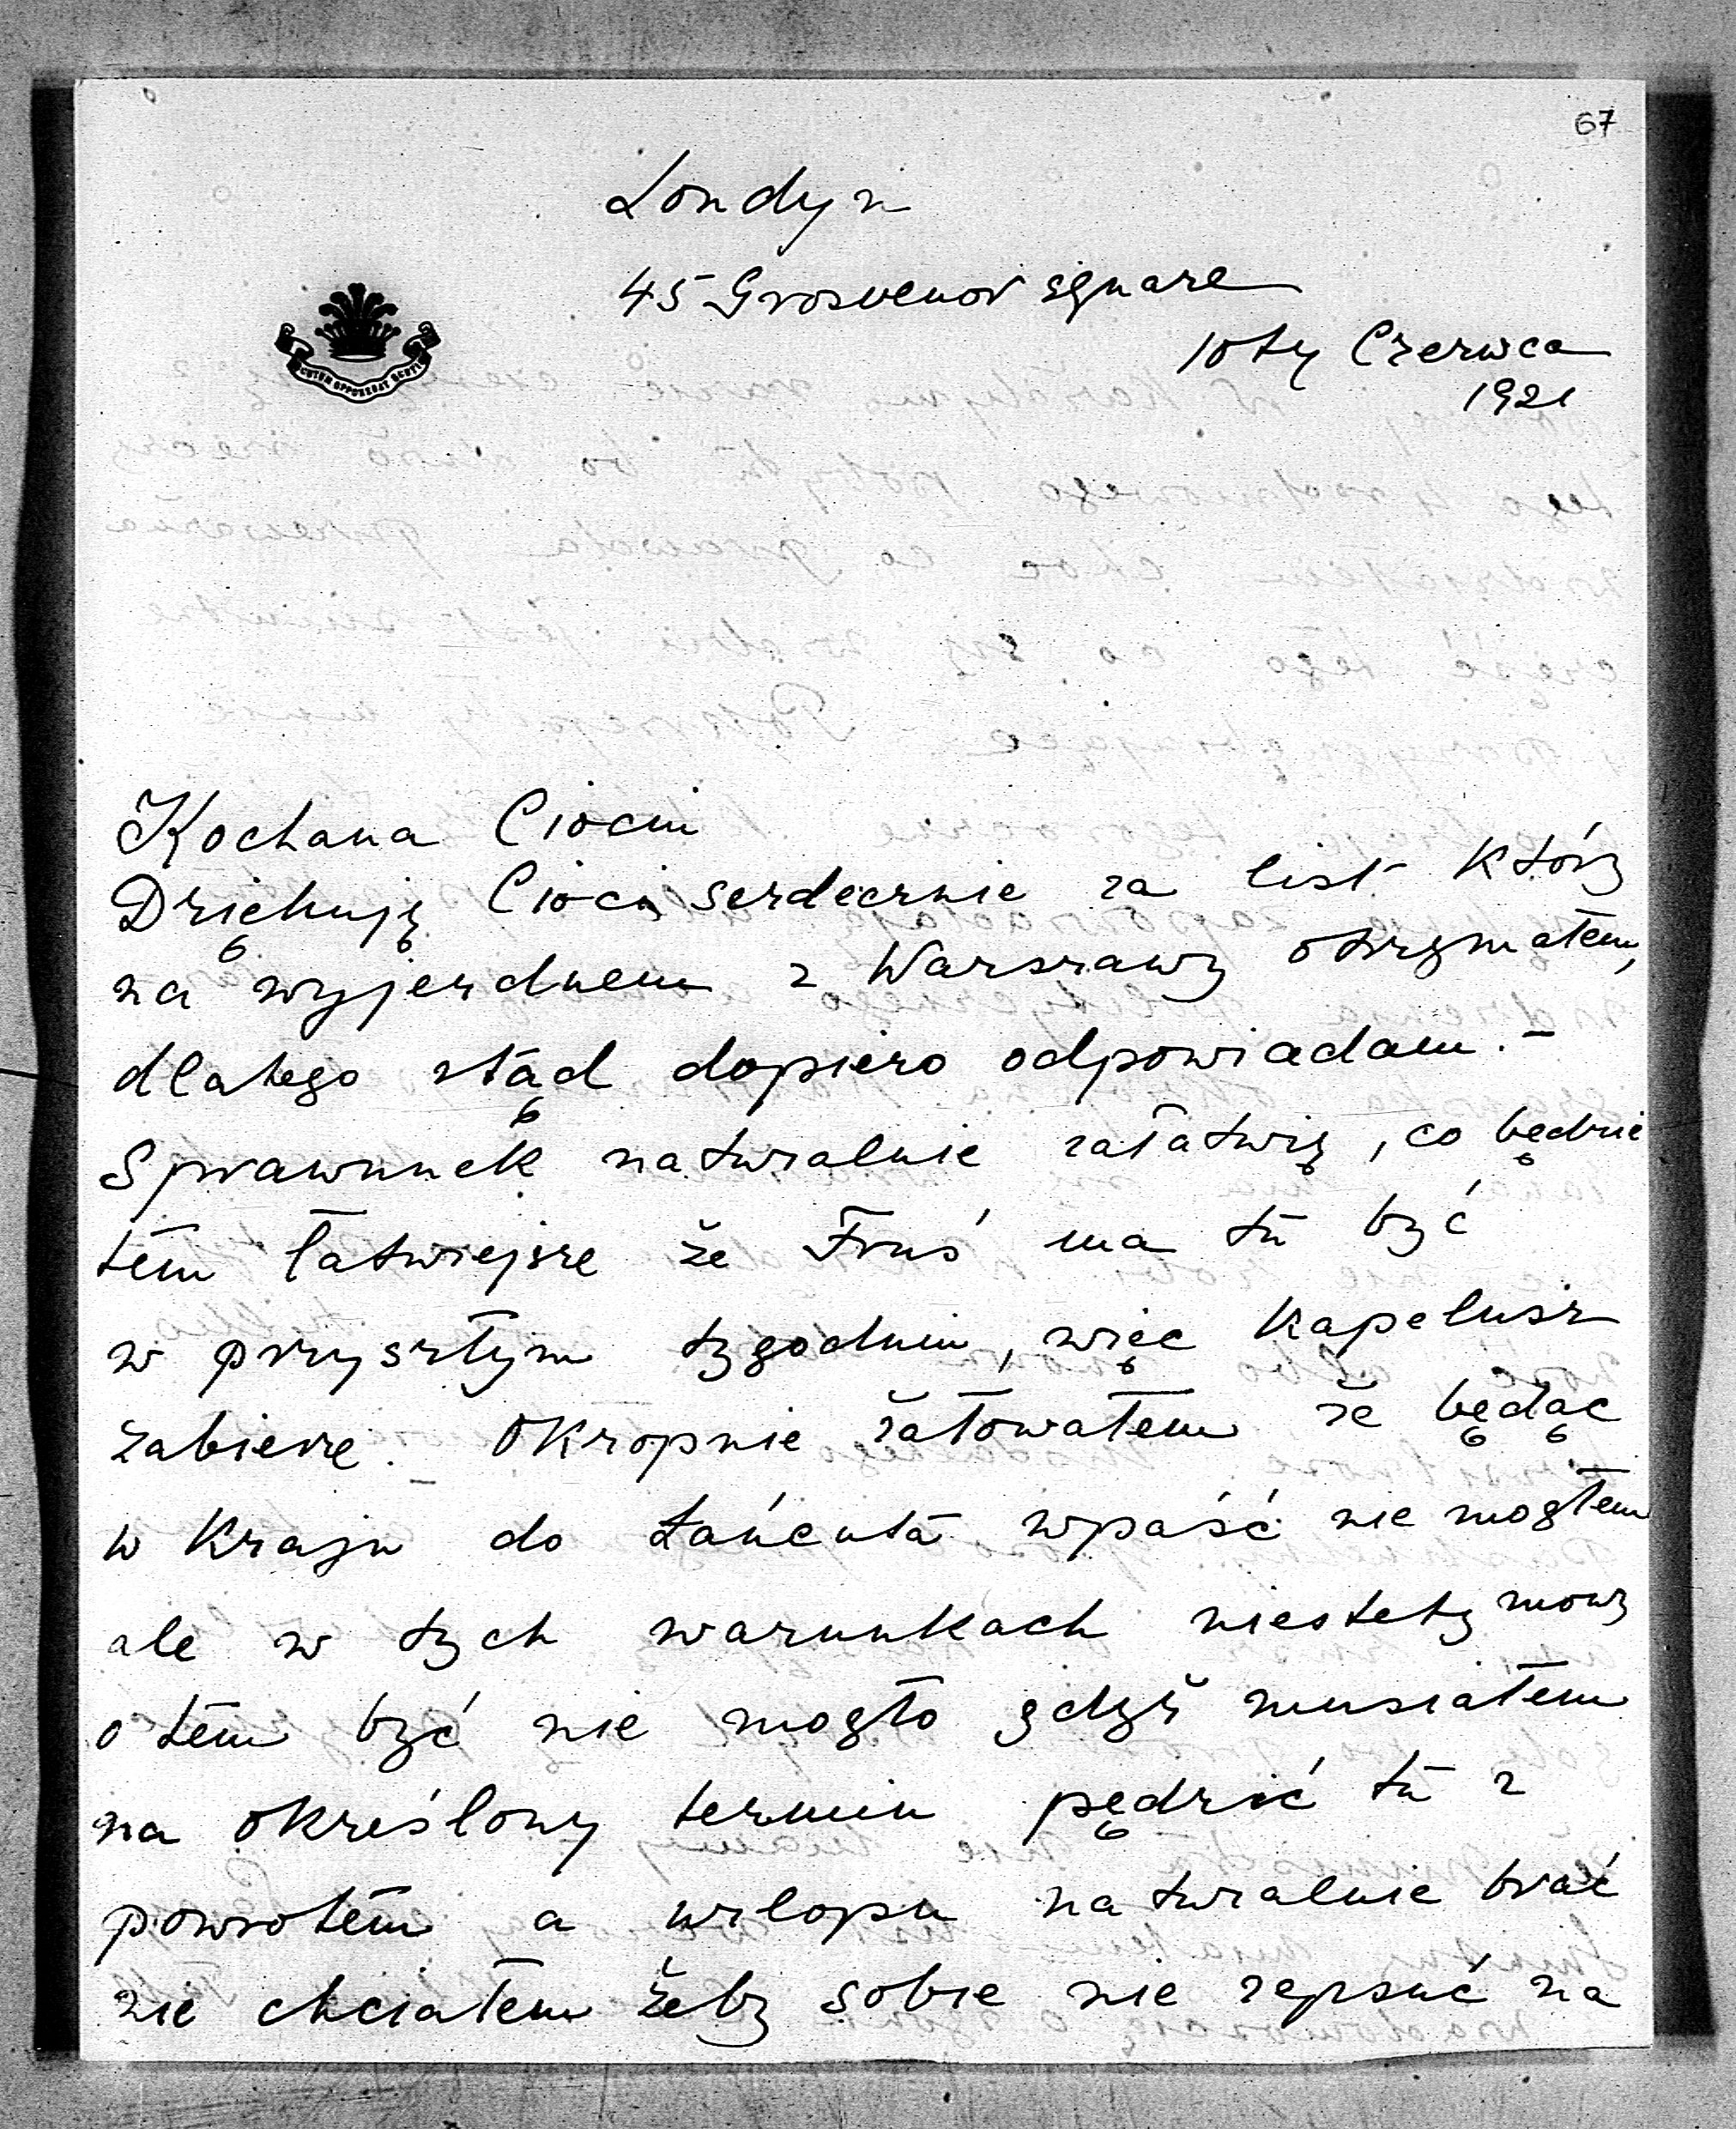 67
Londyn
45 Grosvenor square
10ty Czerwca
1921
SCUTUM OPPONEBAT SCUTIS
Kochana Ciociu
Dziękuję Cioci serdecznie za list który
na wyjezdnem z Warszawy otrzymałem,
dlatego stąd dopiero odpowiadam. –
Sprawunek naturalnie załatwię, co będzie
tem łatwiejsze że Fruś ma tu być
w przyszłym tygodniu, więc kapelusz
zabierze. – Okropnie żałowałem że będąc
w Kraju do Łańcuta wpaść nie mogłem
ale w tych warunkach niestety mowy
o tem być nie mogło gdyż musiałem
na określony termin pędzić tu z
powrotem a urlopu naturalnie brać
nie chciałem żeby sobie nie zepsuć na